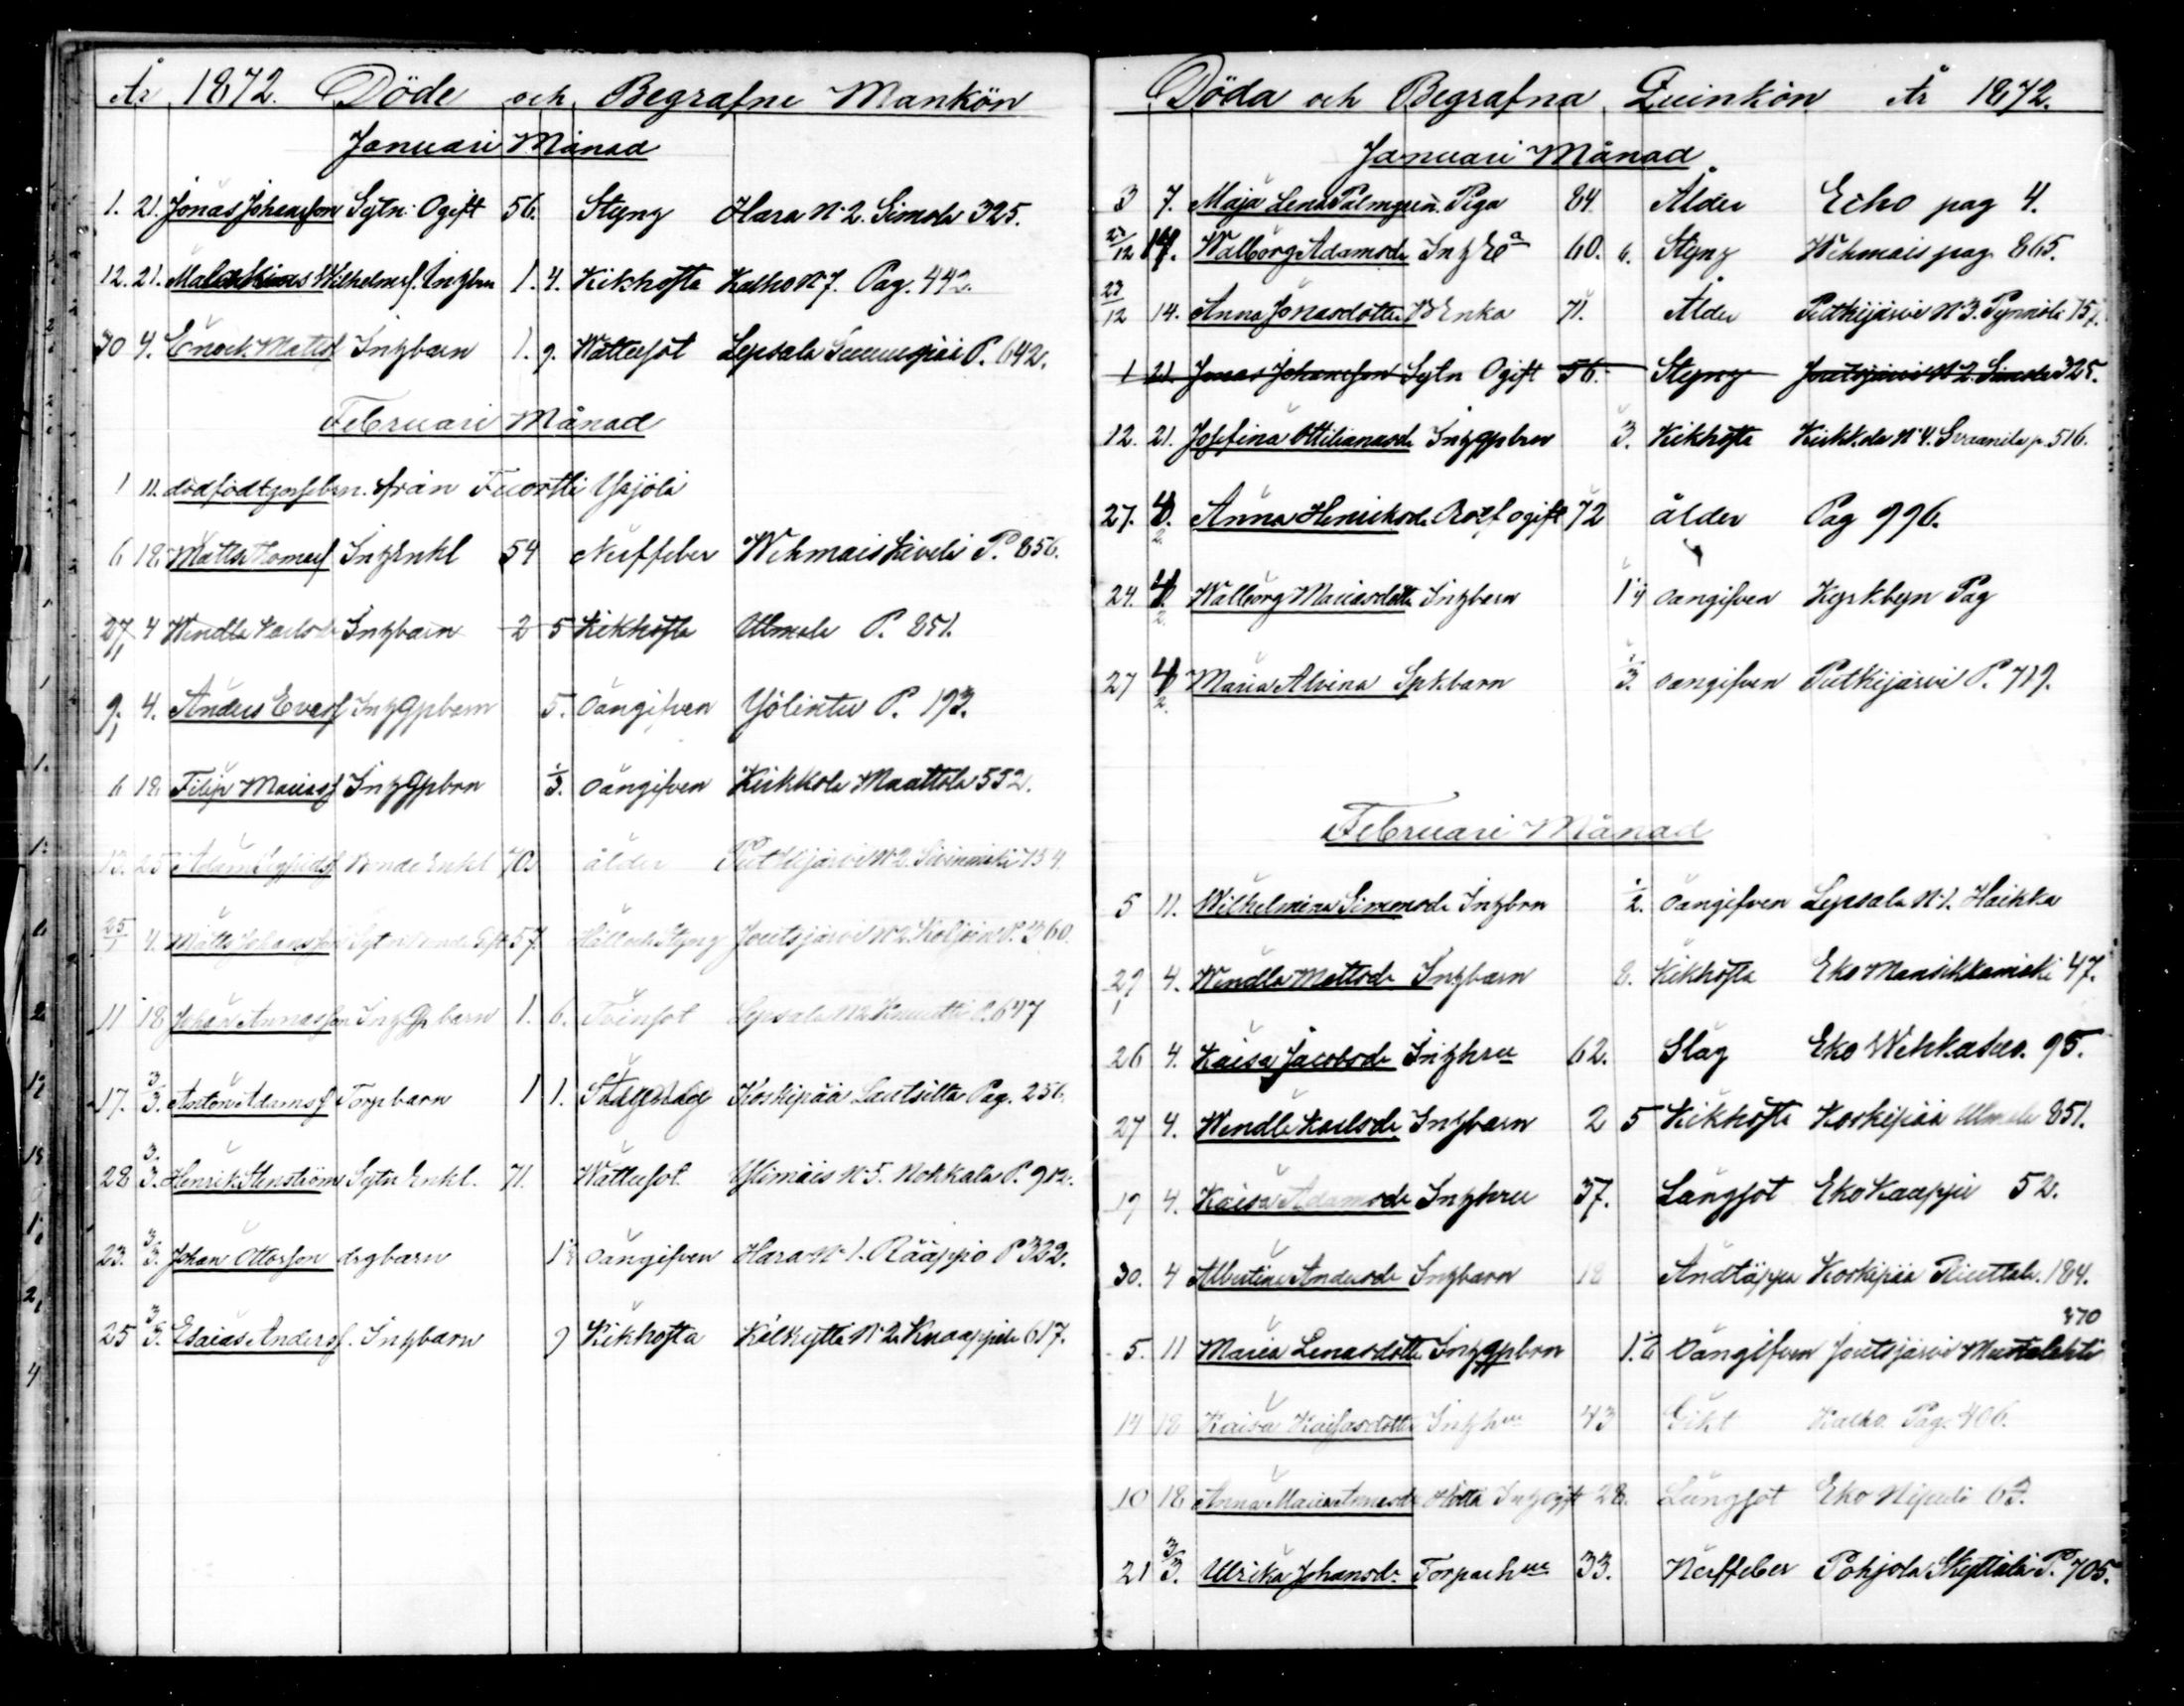 År 1872. Döde och Begrafne Mankön
Januari Månad
1. 21. Jonas Johansson Sytn. Ogift 56. Styng Hara N:2. Simola 325.
12. 21. Malakias Wilhelmsf. Inhbrn 1. 4. Kikhosta Kalho N:7. Pag. 442.
30 4. Enock Mattsf Inhbarn 1. 9. Wattusot Leppsala P. 642.
Februari Månad
1 11. dödfödt gossebrn. från Yrjölä
6 18. Matts Tomasf Inh Enkl 54 Nerffeber Wehmais Liveli P. 856.
27/1 4 Wendla Karlsd Inhbarn 2 5 Kikhosta Ulmala P. 851.
9/1 4. Anders Evasf Inh Gpbarn 5. oangifven Ylilintu P. 193.
6 18. Filip Mariasf Inh Gpbrn 1/3. oangifven Kirkkola Maattola 552.
13. 25 Adam Bonde Enkl 70. ålder Putkijärvi N:2. 754.
25/1 4. Matts Johansson Sytn 57. Håll och Styng Joutsjärvi N:2 P. 360.
11 18 Johan Annasson Inh Gp barn 1. 6. Tvinsot Leppsala N:2 P. 647
17. 3/3. Anton Adamsf Torpbarn 1 1. Koskipää Lautsilta Pag. 256.
28 3/3. Henrik Stenström Sytn Enkl. 71. Wattusot Ylimäis N:5. Nokkala P. 912.
23. 3/3. Johan Ottosson drgbarn oangifven Hara N:1. Rääppio P 322.
25 3/3. Esaias Andersf. Inhbarn 9 Kikhosta Kalkytti N:2 Knaappila 617.
Döda och Begrafna Quinkön År 1872.
Januari Månad
3 7. Maja Lena Palmgren. Piga 84. Ålder Echo pag 4.
23/12 14. Walborg Adamsd. Inh Ea 60. 6. Styng Wehmais pag. 865.
23/12 14. Anna Jonasdotter B Enka 71. Ålder Putkijärvi N:3. 757.
1 21. Jonas Johansson Sytn Ogift 56. Styng Joutsjärvi N:2. Simola 325.
12. 21. Josefina Ottilianasd. Inh gpbrn 3. Kikhosta Kirkkola N:4. Svaanila p. 516.
27. 4/2. Anna Henriksd. Rotf ogift 72 ålder Pag 996.
24. 4/2. Walborg Mariasdotter Inhbarn oangifven Kyrkbyn Pag
27 4/2. Maria Alvina Spkbarn 1/3. oangifven Putkijärvi P. 719.
Februari Månad
5 11. Wilhelmina Simonsd. Inhbrn 1/2. oangifven Leppsala N:1. Haikka
29/1 4. Wendla Mattsd. Inhbarn 8. Kikhosta Eko Mansikkamäki 47.
26 4. Kaisa Jacobsd. Inhhru 62. Slag Eko 95.
27 4. Wendla Karlsd. Inhbarn 2 5 Kikhosta Koskipää Ulmala 851.
19 4. Kaisa Adamsd. Inhhru 37. Lungsot Eko Kaappi 52.
30. 4 Albertina Andersd. Inhbarn 18 Andtäppa Koskipää 184.
370
5. 11 Maria Lenasdotter Inh gpbrn oangifven Joutsjärvi Mustalahti
14 18 Kaisa Kaisasdotter Inhhru 43 Gikt Kalho. Pag. 406.
10 18 Anna Maria Annasd. Inh ogift 28. Lungsot Eko
21 3/3. Ulrika Johansd. Torparhru 33. Nerffeber Pohjola Skyttälä P. 705.